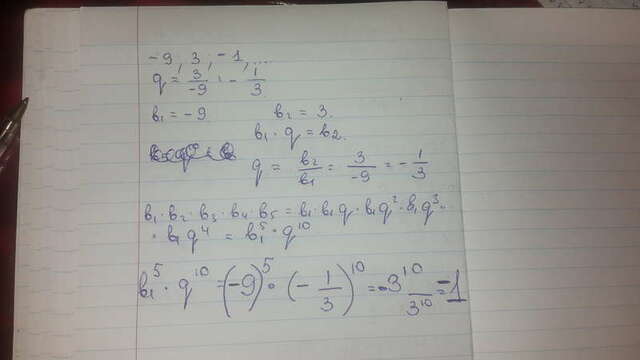 -9, 3, -1, ...
q = 3/-9 = -1/3
b₁ = -9 b₂ = 3.
b₁ · q = b₂.
q = b₂/b₁ = 3/-9 = -1/3
b₁ · b₂ · b₃ · b₄ · b₅ = b₁ · b₁q · b₁q² · b₁q³ ·
· b₁q⁴ = b₁⁵ · q¹⁰
b₁⁵ · q¹⁰ = (-9)⁵ · (-1/3)¹⁰ = -3¹⁰/3¹⁰ = -1